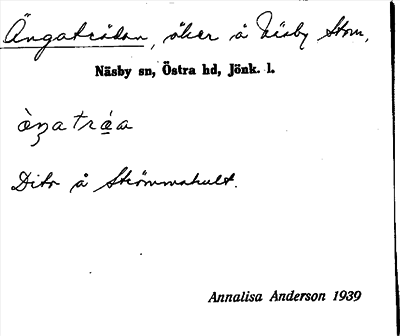 Ängatrådan, åker å Näsby Stom,
Näsby sn, Östra hd, Jönk. l.
Dito å Strömmahult.
Annalisa Anderson 1939